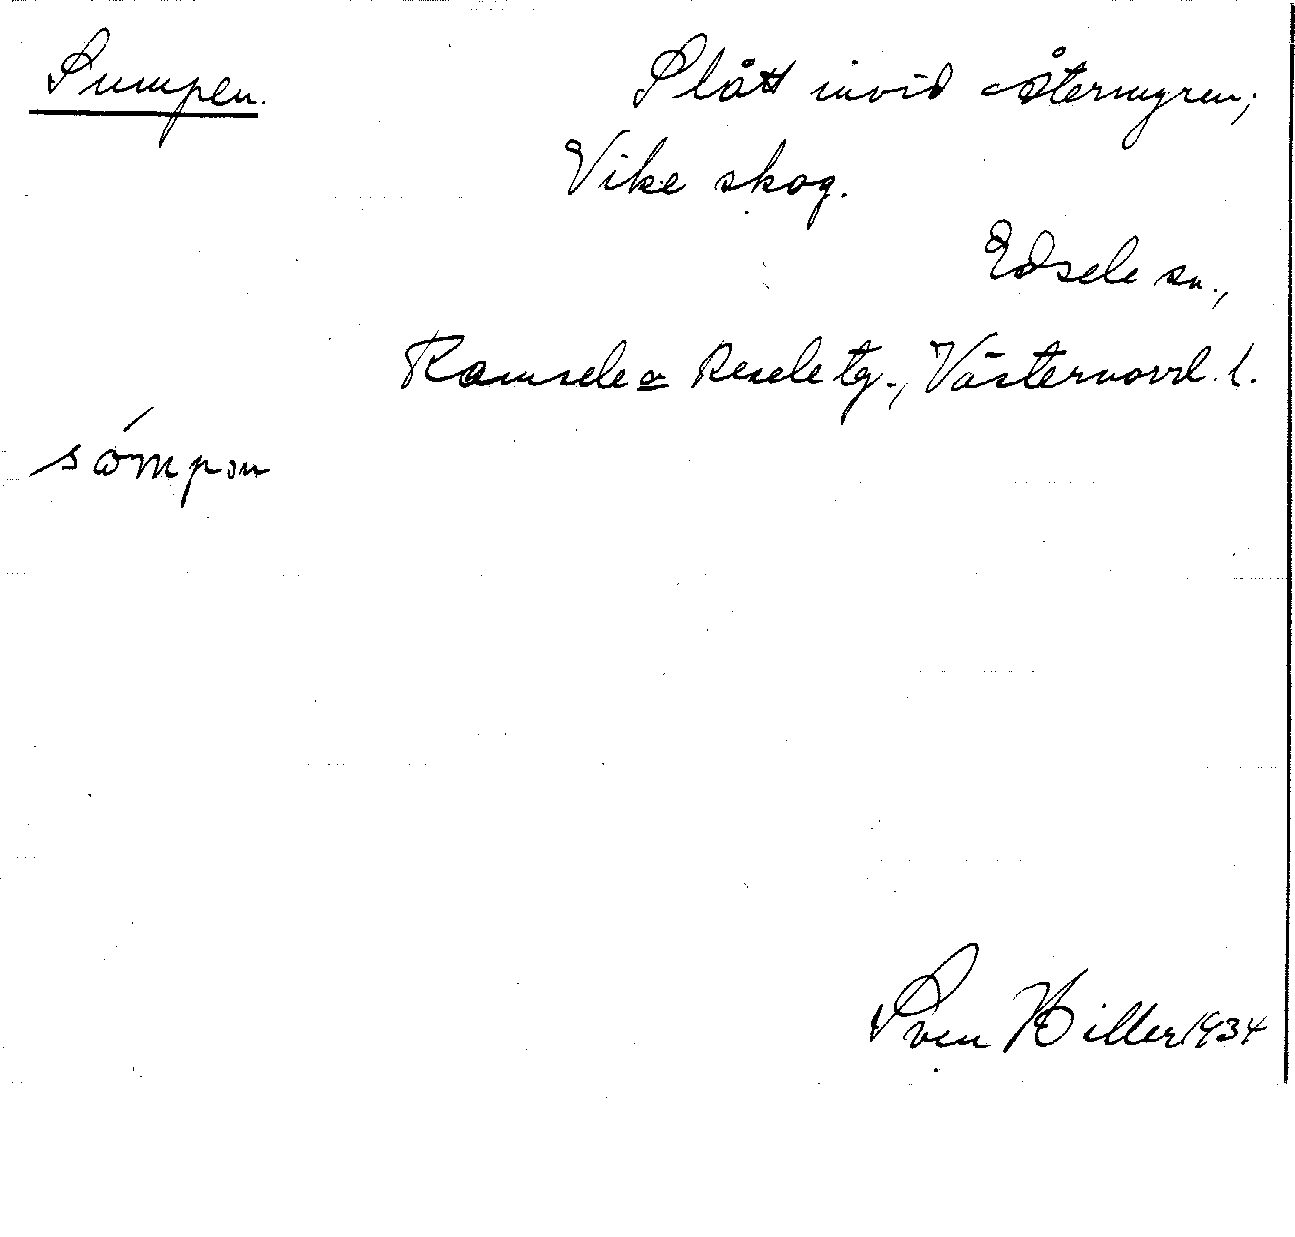 Sumpen.
Slått invid Återmyren;
Vike skog.
Edsele sn.,
Ramsele o Resele tg., Västernorrl. l.
sómpən
Sven Hiller 1934